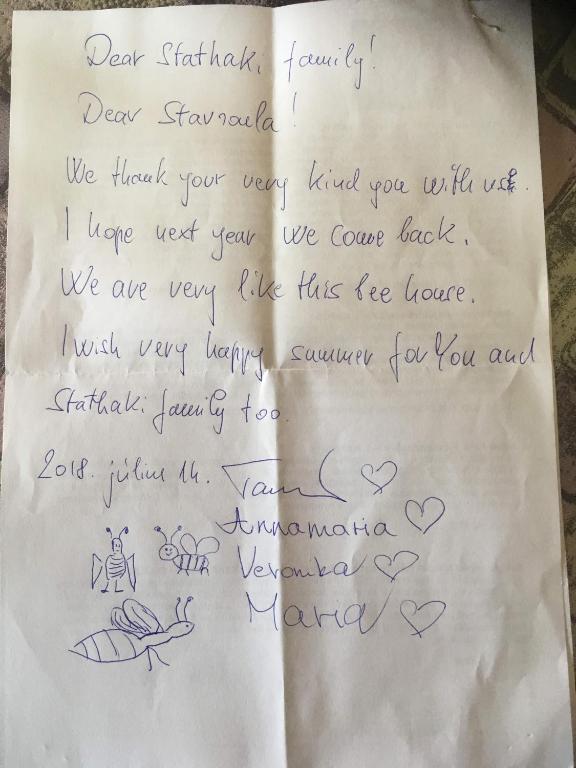 Dear Stathaki family!
Dear Stavroula!
We thank your very kind you with us.
I hope next year we come back.
We are very like this bee house.
I wish very happy summer for You and
Stathaki family too.
2018. július 14.
Annamaria
Veronika
Maria